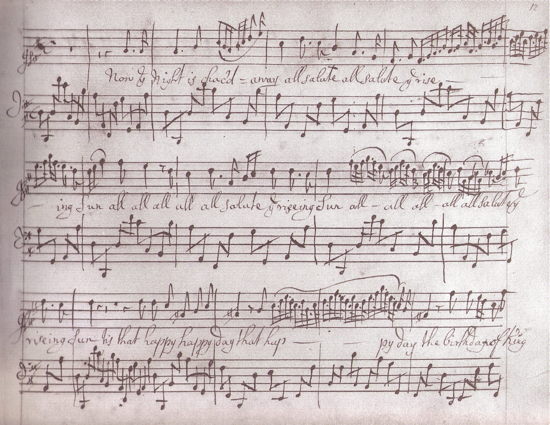 12
Now ye Night is chac'd - away all salute all salute ye rise -
- ing Sun all all all all all salute ye riseing Sun all - all all - all all salute ye
riseing Sun tis that happy happy day that hap - py day the birthday of King